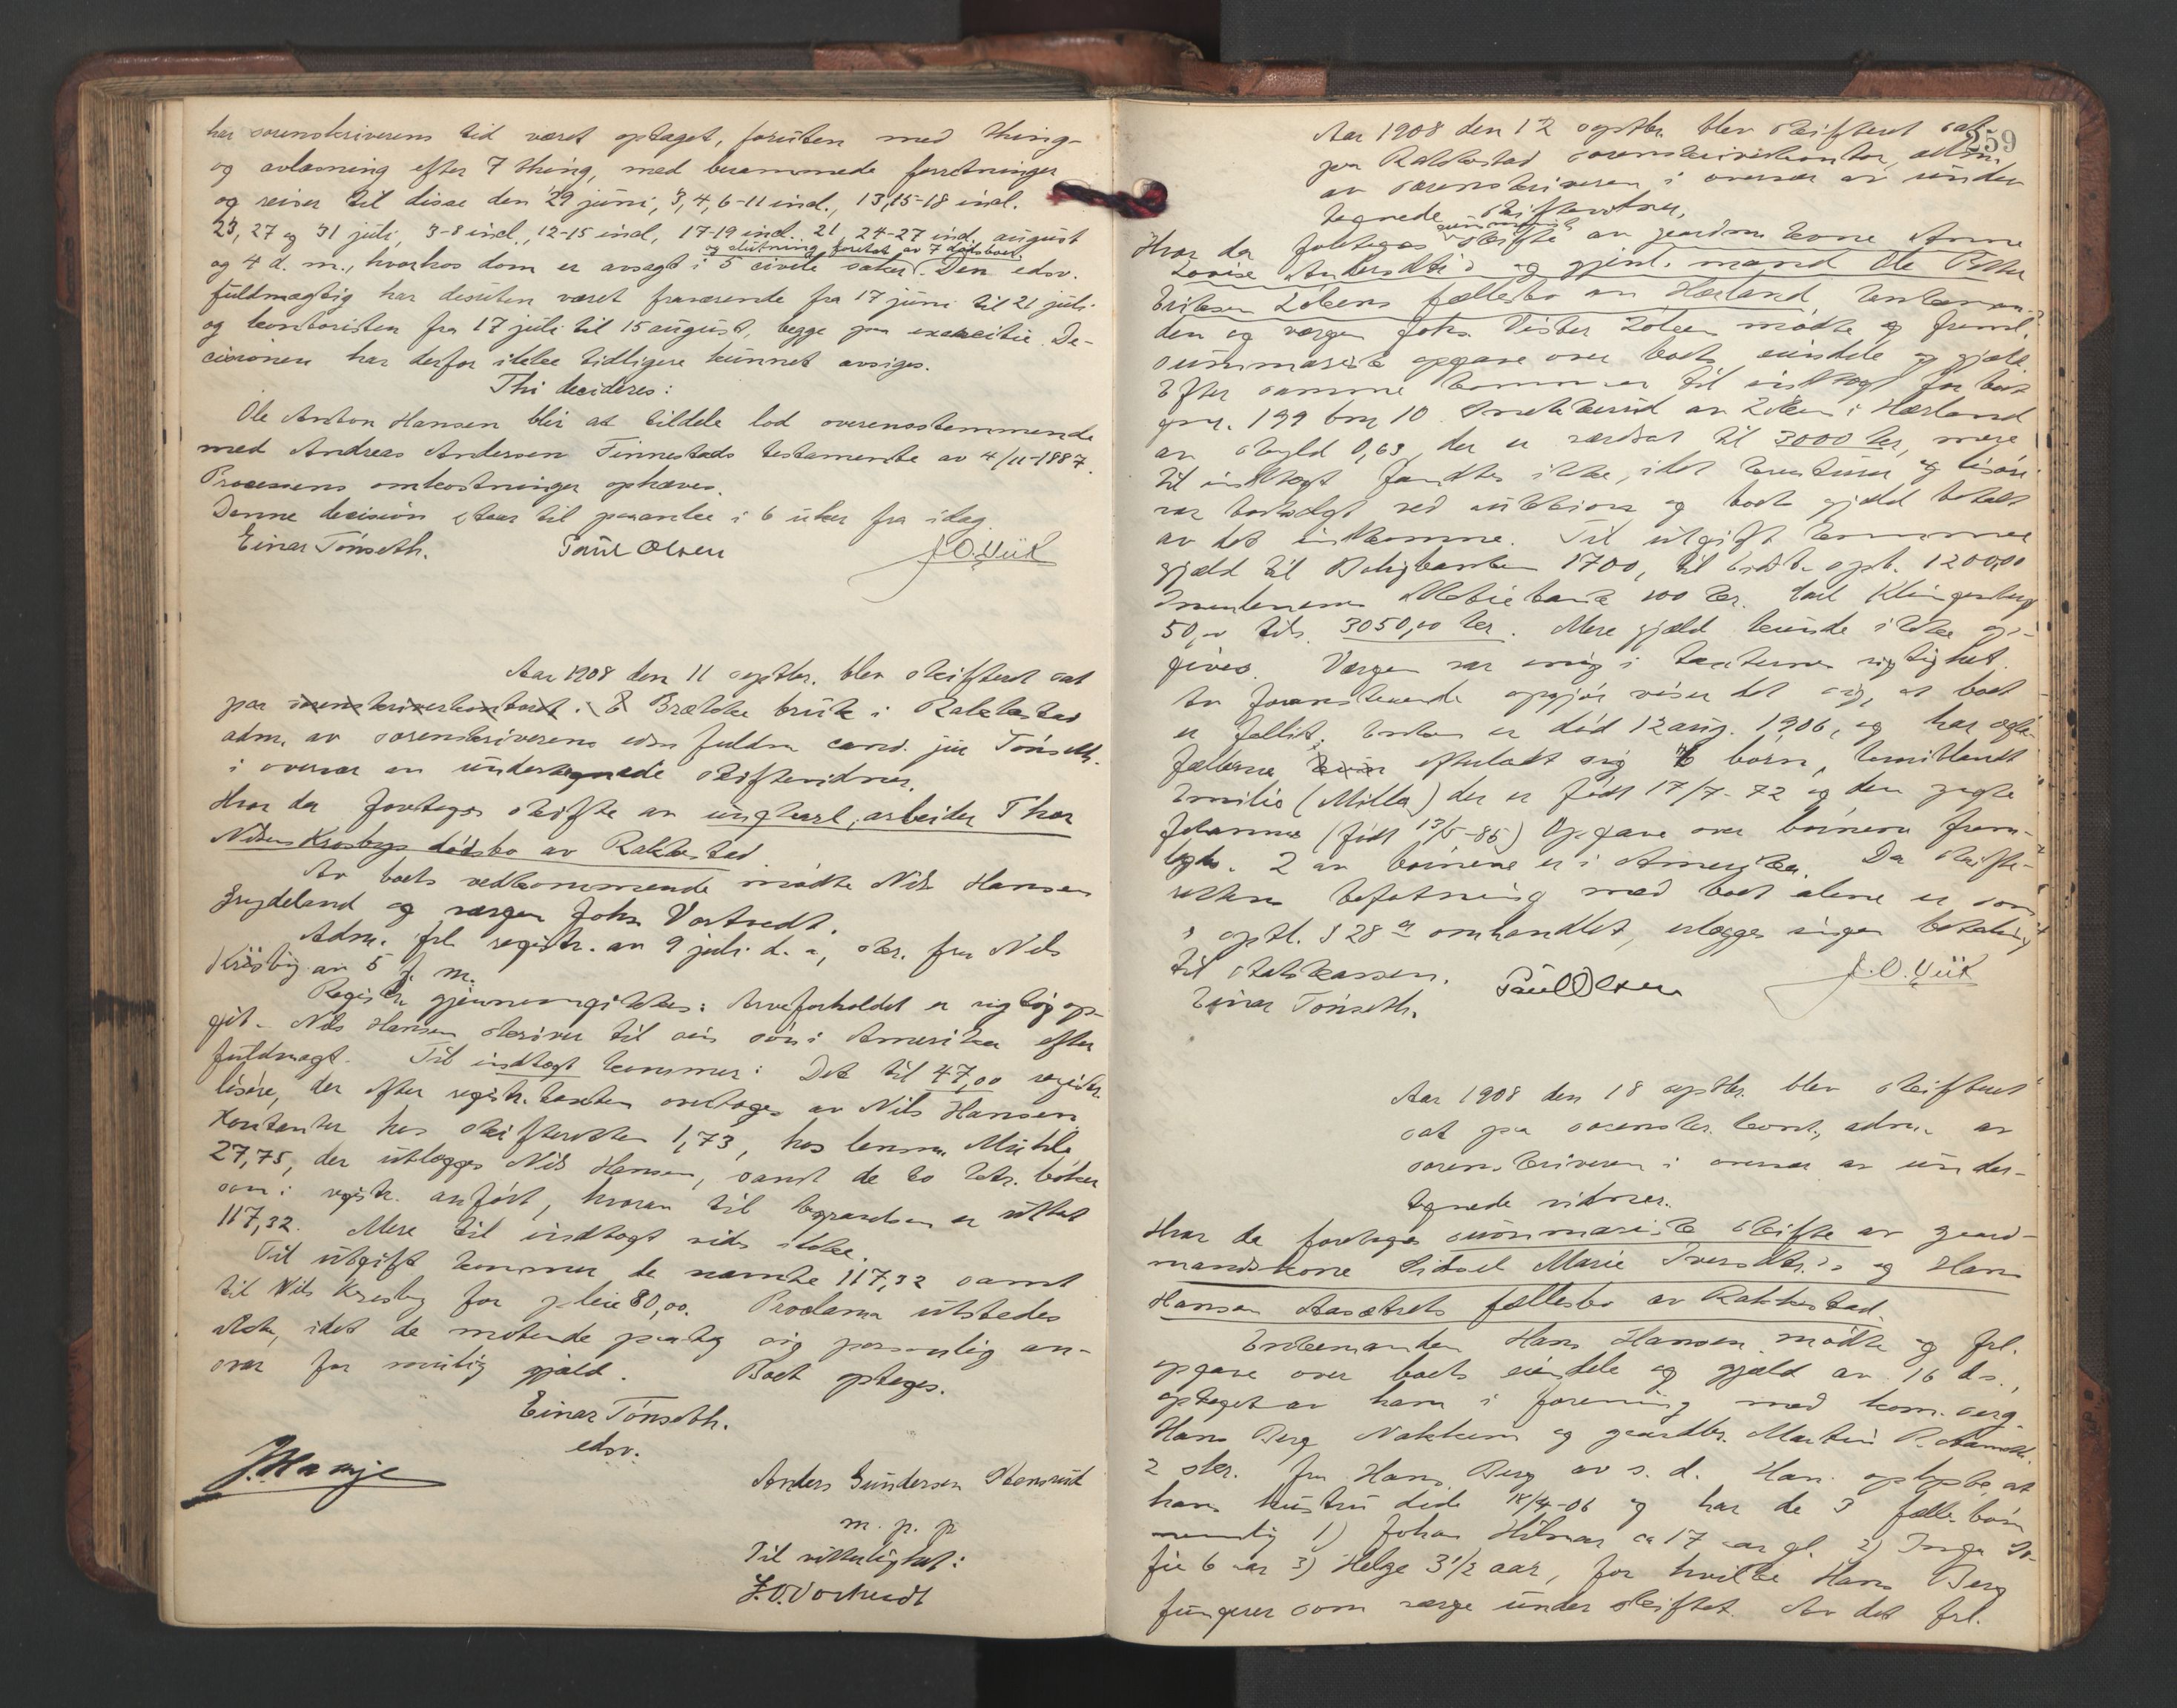 har sorenskriverens tid været optaget, foruten med thing-
og avløsning efter 7 thing, med berammede forretninger
og reiser til disse den 29 juni, 3, 4, 6-11 incl., 13, 15-18 incl.
23, 27 og 31 juli, 3-8 incl., 12-15 incl, 17-19 incl. 21, 24-27 incl. august
og slutning foretat av 7 dødsboer.
og 4 d. m., hvorhos dom er avsagt i 5 civile saker. Den edsv.
fuldmægtig har desuten været fraværende fra 17 juni til 21 juli
og kontoristen fra 17 juli til 15 august, begge paa exercitie. De-
cisionen har derfor ikke tidligere kunnet avsiges.
Thi decideres:
Ole Anton Hansen blir at tildele lod overensstemmende
med Andreas Andersen Finnestads testamente av 4/11-1887.
Processens omkostninger ophæves.
Denne decision staar til paaanke i 6 uker fra idag.
Einar Tønseth. Paul Olsen J.O. Wiik
Aar 1908 den 11 septbr. blev skifteret sat
paa sorenskriverkontoret. Brække bruk i Rakkestad
adm. av sorenskriverens edsv fuldm cand. jur Tønseth.
i overvær av undertegnede skiftevidner.
Hvor da foretoges skifte av ungkarl, arbeider Thor
Nilsen Krosbys dødsbo av Rakkestad.
Av boets vedkommende mødte Nils Hansen
Grydeland og værgen Johs Vortvedt.
Adm. frl. registr. av 9 juli d. a, skr. fra Nils
Krosby av 5 f. m.
Registr gjennemgikkes: Arveforholdet er rigtig op-
git. Nils Hansen skriver til sin søn i Amerika efter
fuldmagt. Til indtægt kommer: Det til 47,00 registr.
løsøre, der efter registr. taxten overtoges av Nils Hansen.
Kontanter hos skifteretten 1,73, hos lensm. Mühle
27,75, der utlægges Nils Hansen, samt de to bøker
som i registr. anført, hvorav til begravelsen er uttat
117,32. Mere til indtægt vides ikke.
Til utgift kommer de nævnte 117,32 samt
til Nils Krosby for pleie 80,00. Proclama utstedes
ikke, idet de møtende paatog sig personlig an-
svar for mulig gjæld. Boet optages.
Einar Tønseth.
edsv.
Anders Gundersen Stensrud
m. p. p
Til vitterlighet:
J.O. Vortvedt
259
Aar 1908 den 12 septbr. blev skifteret sat
paa Rakkestad sorenskriverkontor, adm.
av sorenskriveren i overvær av under
tegnede skiftevidner.
summarisk
Hvor da foretoges skifte av gaardm kone Anne
Lovise Andersdtr's og gjenl. mand Ole Petter
Eriksen Løkens fællesbo av Hærland. Enkeman-
den og værgen Johs. Vister Løken mødte og freml.
summarisk opgave over boets eiendele og gjæld.
Efter samme kommer til indtægt for boet
gnr. 199 bnr 10 av Løken i Hærland
av skyld 0,63, der er værdsat til 3000 kr, mere
til indtægt fandtes ikke, idet kreaturer og løsøre
var bortsolgt ved auktion og boets gjæld betalt
av det indkomne. Til utgift kommer
gjæld til Boligbanken 1700, til 1200,00
Aktiebank 100 kr. Carl Klingenberg
50,00 tils. 3050,00 kr. Mere gjæld kunde ikke op-
gives. Værgen var enig i taxternes rigtighet.
Av foranstaaende opgjør viser det sig, at boet
er fallit. Enken er død 12 aug. 1906, og har egte-
fællerne efterlatt sig 6 børn, hvoriblandt
Emilie (Milla) der er født 17/7-72 og den yngste
Johannes (født 13/5-85) Opgave over børnene frem-
lagdes. 2 av børnene er i Amerika. Da skifte-
rettens befatning med boet alene er som
i sptl. § 28 a omhandlet, erlægges ingen betaling
til statskassen.
Einar Tønseth. Paul Olsen J.O. Wiik
Aar 1908 den 18 septbr. blev skifteret
sat paa sorenskr. kont., adm. av
sorenskriveren i overvær av under-
tegnede vidner.
Hvor da foretoges summarisk skifte av gaard-
mandskone Sidsel Marie Iversdtr.'s og Hans
Hansen Aasætrets fællesbo av Rakkestad.
Enkemanden Hans Hansen mødte og frl.
opgave over boets eiendele og gjæld av 16 ds.,
optaget av ham i forening med kom. værg.
Hans Berg Nakkim og gaardbr. Martin P.
2 skr. fra Hans Berg av s. d. Han oplyste at
hans hustru døde 18/4-06 og har de 3 fælles børn
nemlig 1) Johan Hilmar ca 17 aar gl. 2) Inga So-
fie 6 aar 3) Helge 3 1/2 aar, for hvilke Hans Berg
fungerer som værge under skiftet. Av det frl.